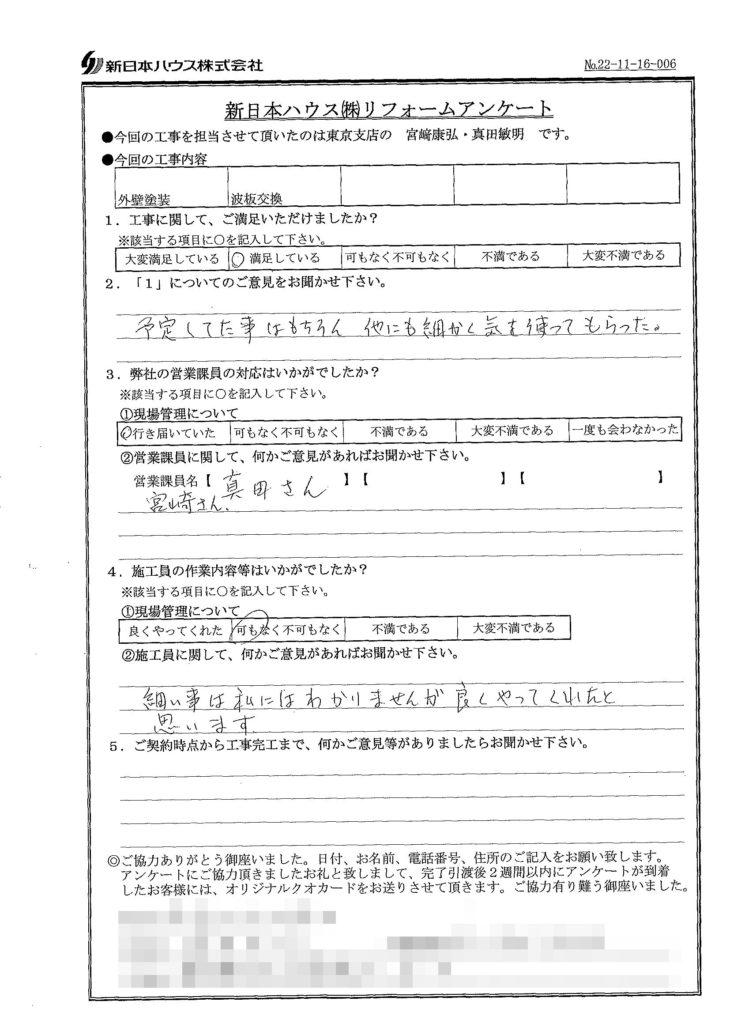 新日本ハウス株式会社
№22-11-16-006
新日本ハウス㈱リフォームアンケート
●今回の工事を担当させて頂いたのは東京支店の 宮﨑康弘・真田敏明 です。
●今回の工事内容
外壁塗装 波板交換
1．工事に関して、ご満足いただけましたか？
※該当する項目に○を記入して下さい。
大変満足している ○ 満足している 可もなく不可もなく 不満である 大変不満である
2．「1」についてのご意見をお聞かせ下さい。
予定してた事はもちろん 他にも細かく気を使ってもらった。
3．弊社の営業課員の対応はいかがでしたか？
※該当する項目に○を記入して下さい。
①現場管理について
○行き届いていた 可もなく不可もなく 不満である 大変不満である 一度も会わなかった
②営業課員に関して、何かご意見があればお聞かせ下さい。
営業課員名【 真田さん 】【 】【 】
宮崎さん、
4．施工員の作業内容等はいかがでしたか？
※該当する項目に○を記入して下さい。
①現場管理について
良くやってくれた 可もなく不可もなく 不満である 大変不満である
②施工員に関して、何かご意見があればお聞かせ下さい。
細い事は私にはわかりませんが良くやってくれたと
思います
5．ご契約時点から工事完工まで、何かご意見等がありましたらお聞かせ下さい。
◎ご協力ありがとう御座いました。日付、お名前、電話番号、住所のご記入をお願い致します。
アンケートにご協力頂きましたお礼と致しまして、完了引渡後2週間以内にアンケートが到着
したお客様には、オリジナルクオカードをお送りさせて頂きます。ご協力有り難う御座いました。